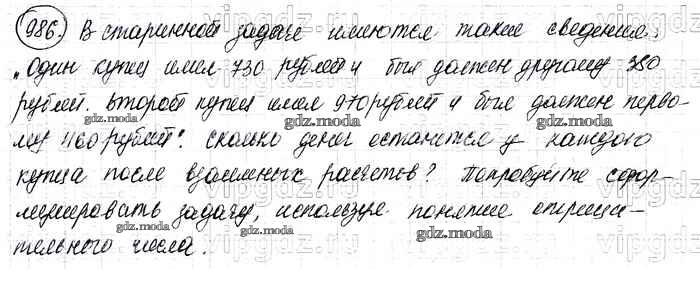 986. В старинной задаче имеются такие сведения:
„Один купец имел 730 рублей и был должен другому 380
рублей. Второй купец имел 970 рублей и был должен перво-
му 460 рублей". Сколько денег останется у каждого
купца после взаимных расчетов? Попробуйте сфор-
мулировать задачу, используя понятие отрица-
тельного числа.
gdz.moda
gdz.moda
gdz.moda
gdz.moda
gdz.moda
gdz.moda
gdz.moda
vipgdz.ru